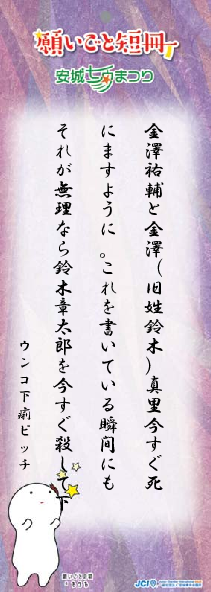 願いごと短冊
安城七夕まつり
金澤祐輔と金澤(旧姓鈴木)真里今すぐ死
にますように。これを書いている瞬間にも
それが無理なら鈴木章太郎を今すぐ殺して下
ウンコ下痢ビッチ
願いごと短冊
JCI